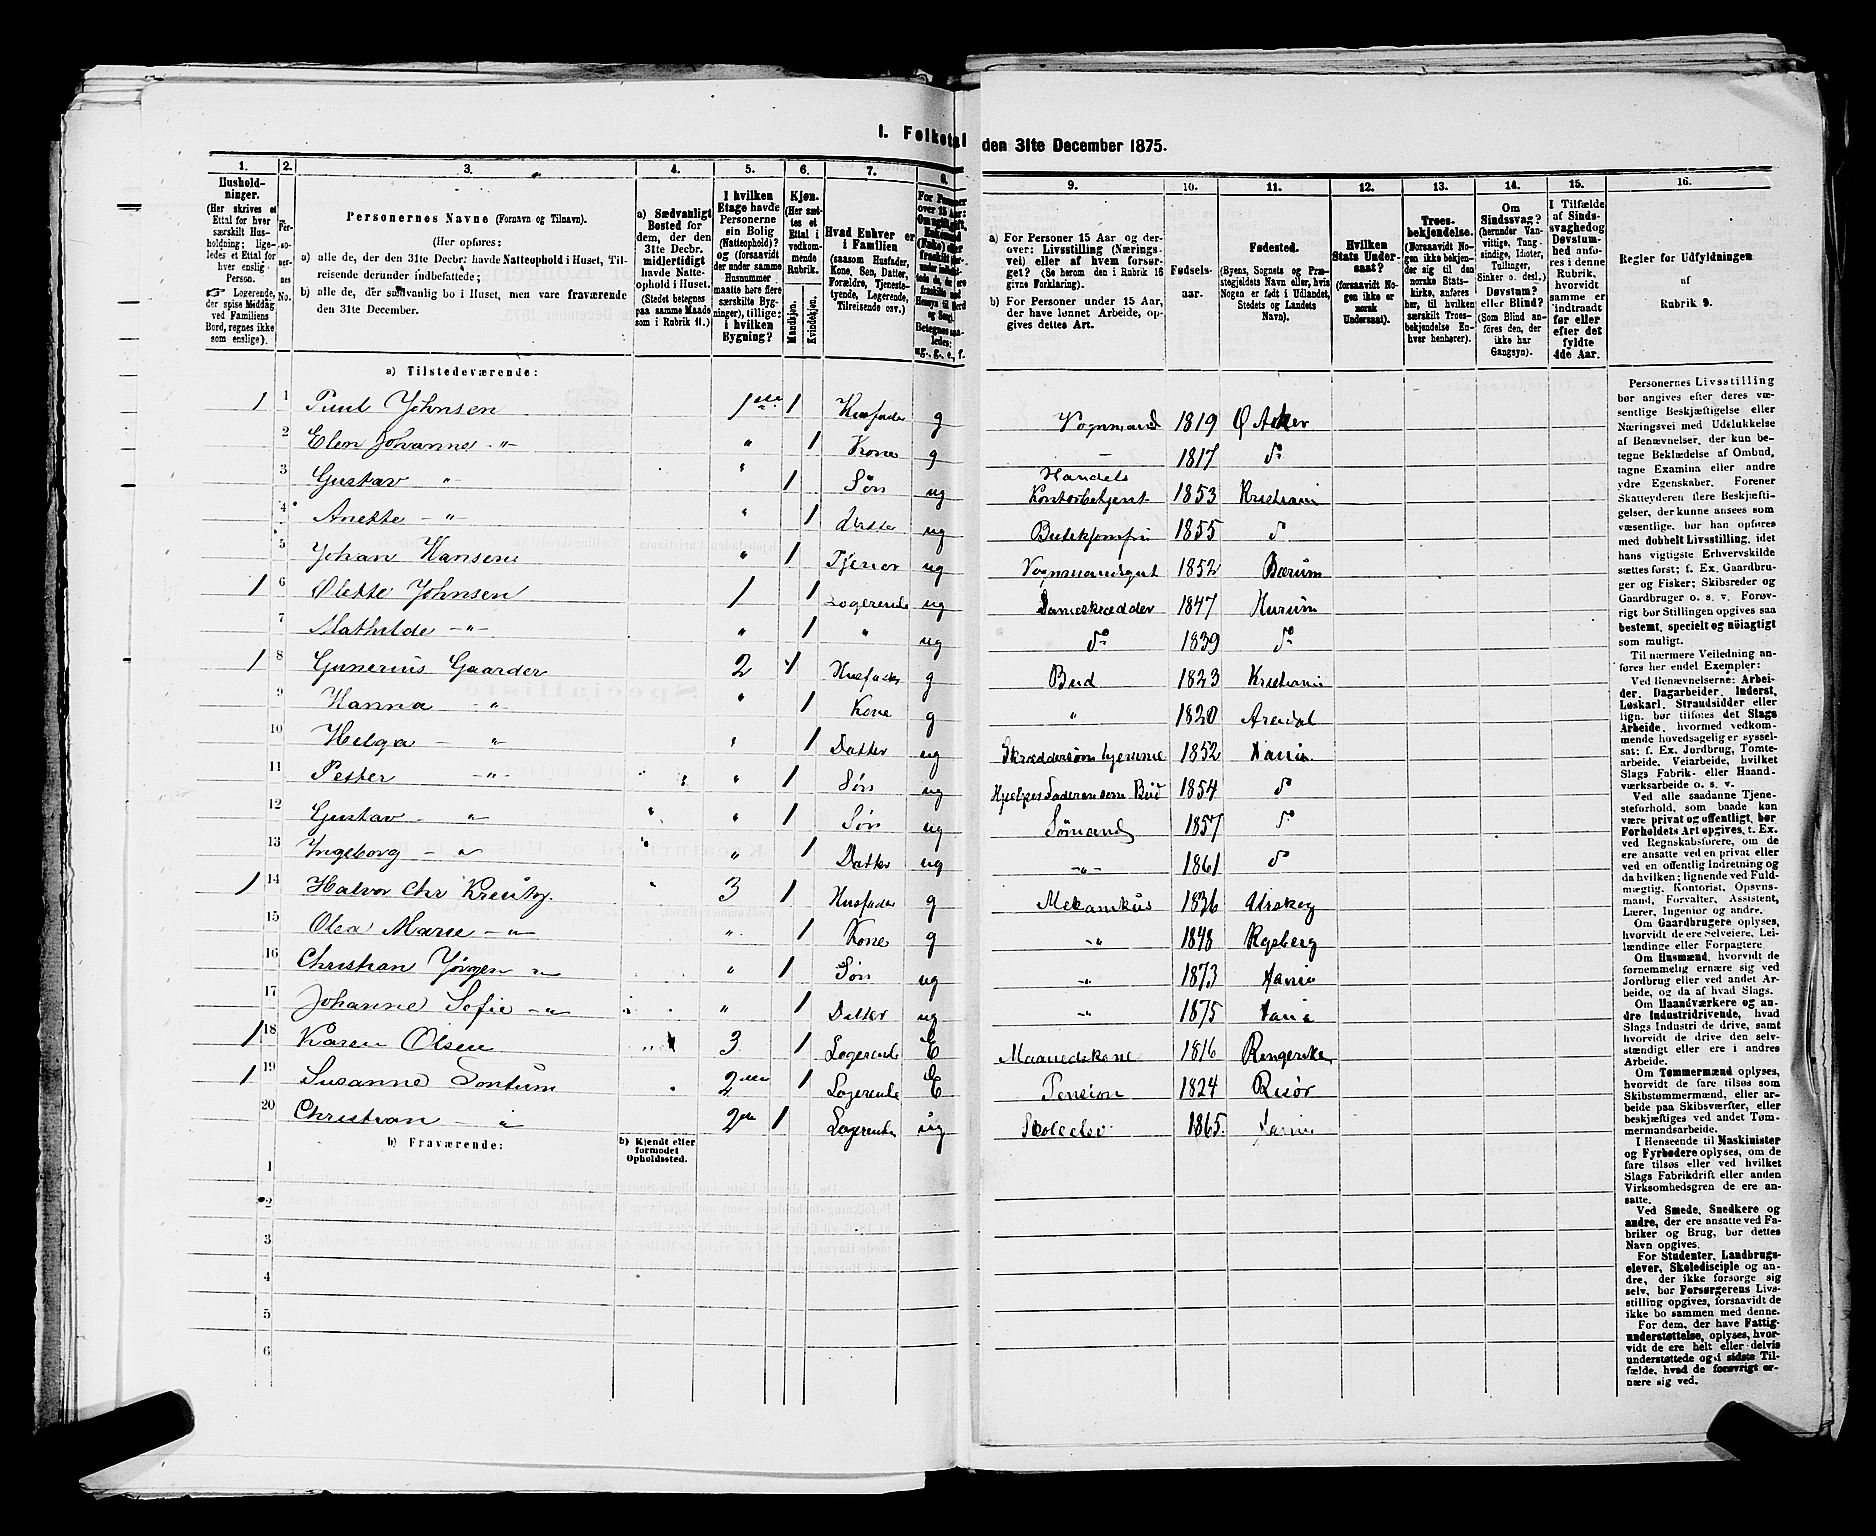 I. Folketal den 31te December 1875.
1. 2. 3. 4. 5. 6. 7. 8. 9. 10. 11. 12. 13. 14. 15. 16.
Husholdninger.
(Her skrives et Ettal for hver særskilt Husholdning; ligeledes et Ettal for hver enslig Person.
☞ Logerende, der spise Middag ved Familiens Bord, regnes ikke som enslige).
Personernes No.
Personernes Navne (Fornavn og Tilnavn).
(Her opføres:
a) alle de, der den 31te Decbr. havde Natteophold i Huset, Tilreisende derunder indbefattede;
b) alle de, der sædvanlig bo i Huset, men vare fraværende den 31te December.
a) Sædvanligt Bosted for dem, der den 31te Decbr. midlertidigt havde Natteophold i Huset. (Stedet betegnes paa samme Maade som i Rubrik 11.)
I hvilken Etage havde Personerne sin Bolig (Natteophold)? og (forsaavidt der under samme Husnummer maatte høre flere særskilte Bygninger), tillige: i hvilken Bygning?
Kjøn. (Her sættes et Ettal i vedkommende Rubrik.
Mandkjøn. Kvindekjøn.
Hvad Enhver er i Familien (saasom Husfader, Kone, Søn, Datter, Forældre, Tjenestetyende, Logerende, Tilreisende osv.)
For Personer over 15 Aar:
Betegnes saaledes: ug., g., e., f.
a) For Personer 15 Aar og derover: Livsstilling (Næringsvei) eller af hvem forsørget? (Se herom den i Rubrik 16 givne Forklaring).
b) For Personer under 15 Aar, der have lønnet Arbeide, opgives dettes Art.
Fødselsaar.
Fødested. (Byens, Sognets og Præstegjeldets Navn eller, hvis Nogen er født i Udlandet, Stedets og Landets Navn).
Hvilken Stats Undersaat? (forsaavidt Nogen ikke er norsk Undersaat).
Troesbekjendelse. (Forsaavidt Nogen ikke bekjender sig til den norske Statskirke, anføres her, til hvilken særskilt Troesbekjendelse Enhver henhører).
Om Sindssvag? (herunder Vanvittige, Tungsindige, Idioter, Tullinger, Sinker o. desl.) Døvstum? eller Blind? (Som Blind anføres den, der ikke har Gangsyn).
I Tilfælde af Sindssvaghed og Døvstumhed anføres i denne Rubrik, hvorvidt samme er indtraadt før eller efter det fyldte 4de Aar.
Regler for Udfyldningen af Rubrik 9.
a) Tilstedeværende:
1 1 Juul Johnsen 1ste 1 Husfader g Vognmand 1819 Ø Aker
2 Elen Johanne -"- " 1 Kone g — 1817 do
3 Gustav " " 1 Søn ug Handels Kontorbetjent 1853 Kristiania
4 Anette -"- " 1 Datter ug 1855 do
5 Johan Hansen " 1 Tjener ug Vognmandsgut 1852 Bærum
1 6 Olette Johnsen 1 1 Logerende ug Dameskrædder 1847 Hurum
7 Mathilde -"- " 1 " ug do 1839 do
1 8 Gunerius Gaarder 2 1 Husfader g Bud 1823 Kristiania
9 Hanna -"- " 1 Kone g " 1820 Arendal
10 Helga -"- " 1 Datter ug Skræddersøm hjemme 1852 Xania
11 Petter -"- " 1 Søn ug Hjelper Faderen som Bud 1854 do
12 Gustav -"- " 1 Søn ug Sømand 1857 do
13 Ingeborg -"- " 1 Datter ug -"- 1861 do
1 14 Halvor Chr 3 1 Husfader g Mekanikus 1836 Urskog
15 Olea Marie -"- " 1 Kone g -"- 1848 Rygeberg
16 Christian Jörgen -"- " 1 Søn ug -"- 1873 Xania
17 Johanne Sofie -"- " 1 Datter ug -"- 1875 Xania
1 18 Karen Olsen 3 1 Logerende E Maanedskone 1816 Ringerike
1 19 Susanne Sontum 2den 1 Logerende E Pension 1824 Risør
20 Christian -"- 2de 1 Logerende ug Skoleelev 1865. Xania
b) Fraværende:
b) Kjendt eller formodet Opholdssted.
1
2
3
4
5
6
Personernes Livsstilling
bør angives efter deres væ-
sentlige Beskjæftigelse eller
Næringsvei med Udelukkelse
af Benævnelser, der kun be-
tegne Beklædelse af Ombud,
tagne Examina eller andre
ydre Egenskaber. Forener
Skatteyderen flere Beskjæfti-
gelser, der kunne ansees som
væsentlige, bør han opføres
med dobbelt Livsstilling, idet
hans vigtigste Erhvervskilde
sættes først; f. Ex. Gaardbru-
ger og Fisker; Skibsreder og
Gaardbruger o. s. v. Forøv-
rigt bør Stillingen opgives saa
bestemt, specielt og nöiagtigt
som muligt.
Til nærmere Veiledning an-
føres her endel Exempler:
Ved Benævnelserne: Arbei-
der, Dagarbeider, Inderst,
Løskarl, Strandsidder eller
lign. bør tilføres det Slags
Arbeide, hvormed vedkom-
mende hovedsagelig er syssel-
sat; f. Ex. Jordbrug, Tomte-
arbeide, Veiarbeide, hvilket
Slags Fabrik- eller Haand-
værksarbeide o. s. v.
Ved alle saadanne Tjene-
steforhold, som baade kan
være privat og offentligt, bør
Forholdets Art opgives, t. Ex.
ved Regnskabsførere, om de
ere ansatte ved en privat eller
ved en offentlig Indretning og
da hvilken; lignende ved Fuld-
mægtig, Kontorist, Opsyns-
mand, Forvalter, Assistent,
Lærer, Ingeniør og andre.
Om Gaardbrugere oplyses,
hvorvidt de ere Selveiere, Lei-
lændinge eller Forpagtere.
Om Husmænd, hvorvidt de
fornemmelig ernære sig ved
Jordbrug eller ved andet Ar-
beide, og da af hvad Slags.
Om Haandværkere og an-
dre Industridrivende, hvad
Slags Industri de drive, samt
hvorvidt de drive den selv-
stændigt eller ere i andres
Arbeide.
Om Tømmermænd oplyses,
hvorvidt de fare tilsøs som
Skibstømmermænd, eller ar-
beide paa Skibsværfter, eller
beskjæftiges ved andet Tøm-
mermandsarbeide.
I Henseende til Maskinister
og Fyrbødere oplyses, om de
fare tilsøs eller ved hvilket
Slags Fabrikdrift eller anden
Virksomhedsgren de ere an-
satte.
Ved Smede, Snedkere og
andre, der ere ansatte ved Fa-
briker og Brug, bør dettes
Navn opgives.
For Studenter, Landbrugs-
elever, Skoledisciple og an-
dre, der ikke forsørge sig
selv, bør Forsørgerens Livs-
stilling opgives, forsaavidt de
ikke bo sammen med denne.
For dem, der have Fattig-
understøttelse, oplyses, hvor-
vidt de ere helt eller delvis
understøttede og i sidste Til-
fælde, hvad de forøvrigt er-
nære sig ved.